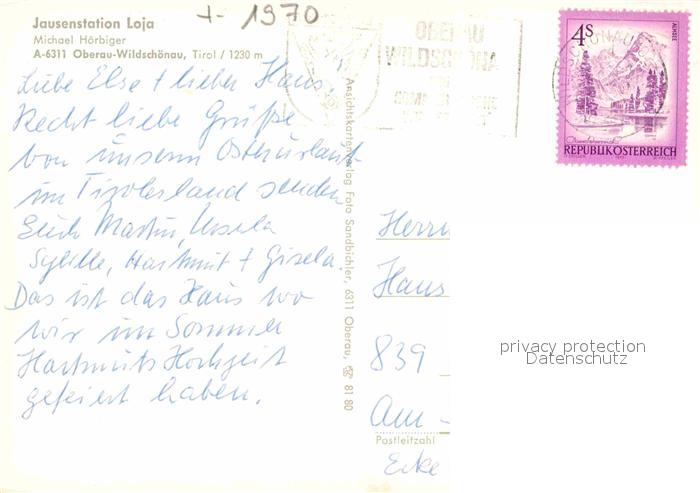 +-1970
Jausenstation Loja
Michael Hörbiger
A-6311 Oberau-Wildschönau, Tirol / 1230 m
Liebe Else + lieber Hans,
Recht liebe Grüße
von unserm Osterurlaub
im Tirolerland senden
Euch Martin, Ursela
Sybille, Hartmut + Gisela.
Das ist das Haus wo
wir im Sommer
Hartmuts Hochzeit
gefeiert haben.
Ansichtskartenverlag Foto Sandbichler, 6311 Oberau, ☎ 81 80
OBERAU
WILDSCHÖNA
4s
ALMSEE
REPUBLIK ÖSTERREICH
Herrn
Hans
839
Am-
Postleitzahl
Ecke
privacy protection
Datenschutz